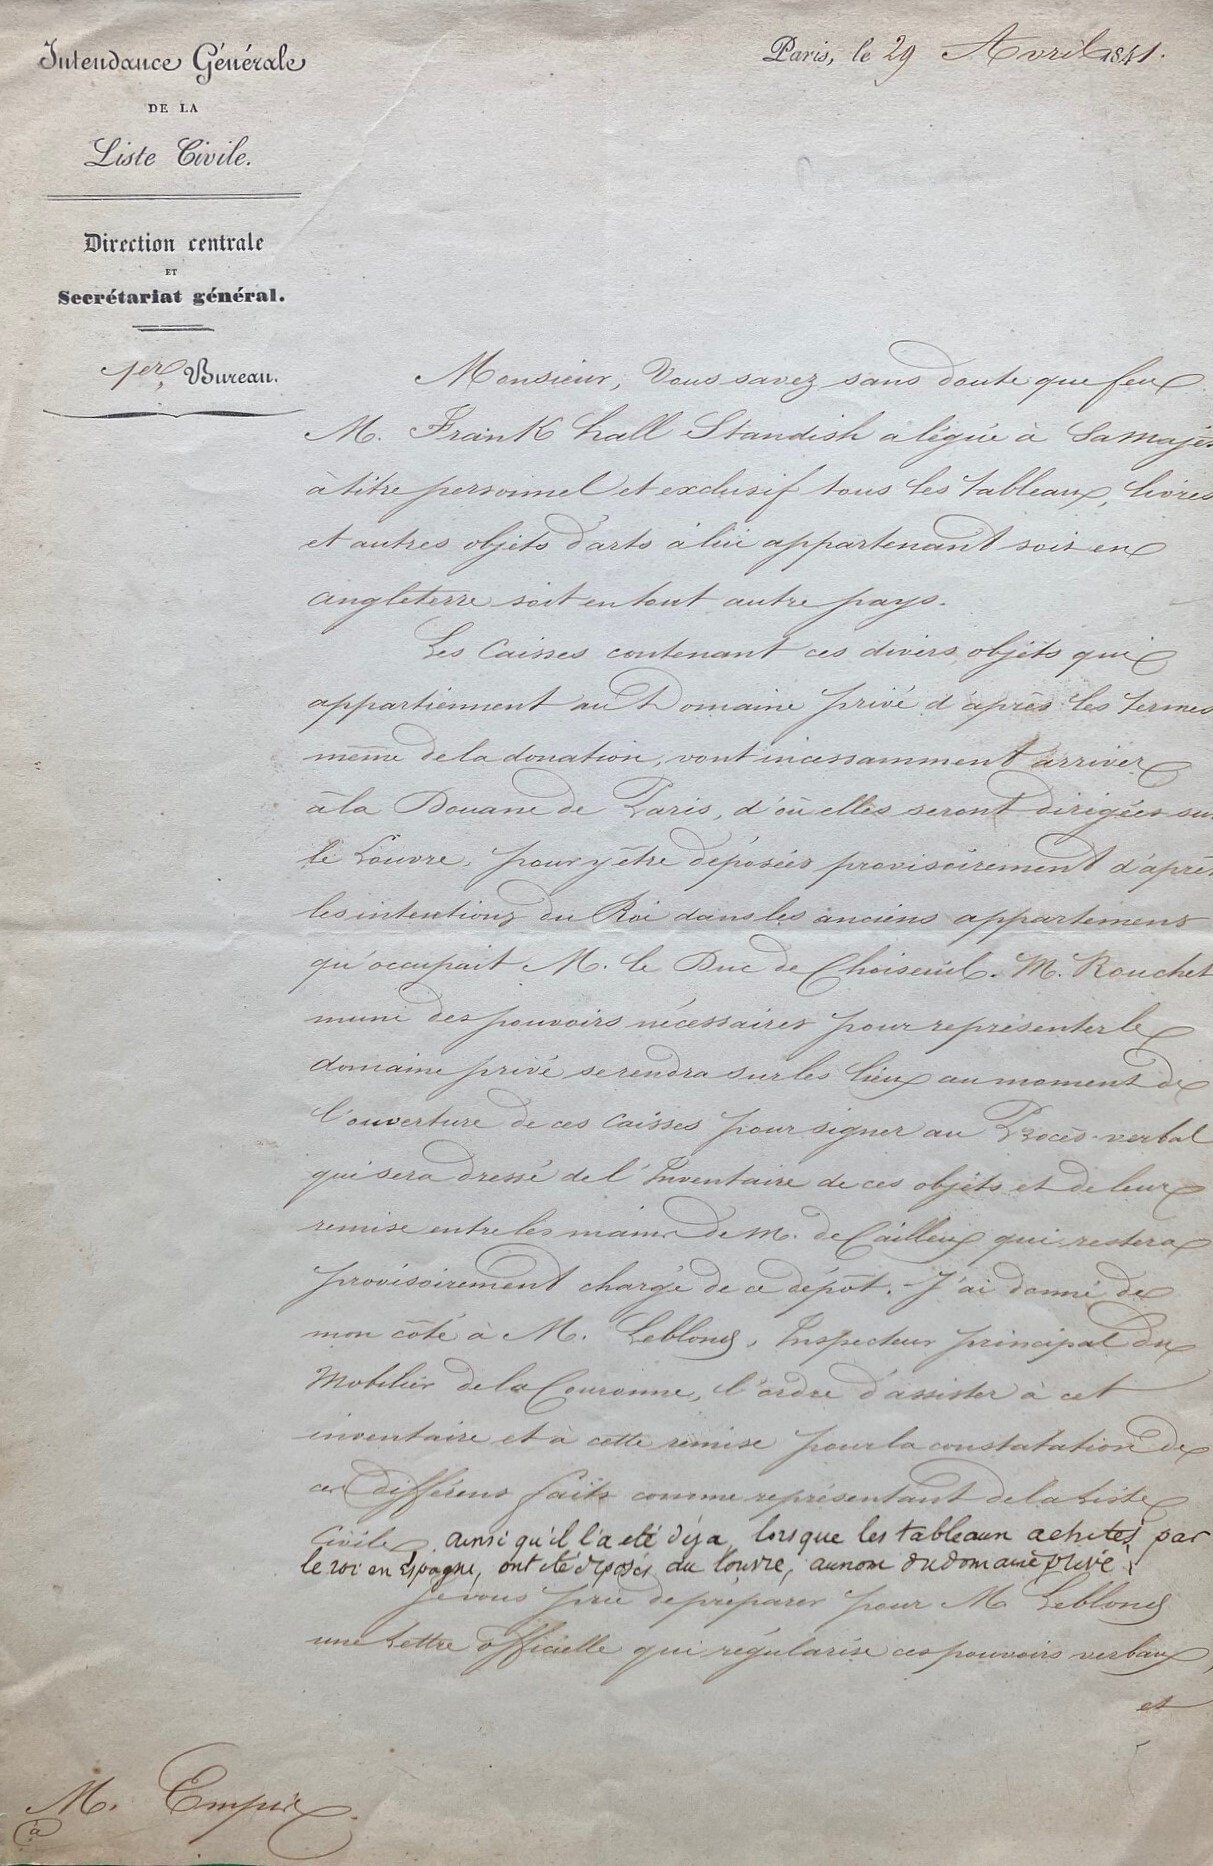 Intendance Générale
DE LA
Liste Civile.
Direction centrale
ET
Secrétariat général.
1er Bureau.
Paris, le 29 Avril 1841.
Monsieur, Vous savez sans doute que feu
M. Frank hall Standish a légué à Sa Majes
à titre personnel et exclusif tous les tableaux, livres
et autres objets d'arts à lui appartenant soit en
angleterre soit en tout autre pays.
Les Caisses contenant ces divers objets qui
appartiennent au Domaine privé d'après les termes
même de la donation, vont incessamment arriver
à la Douane de Paris, d'où elles seront dirigées sur
le Louvre, pour y être déposées provisoirement d'après
les intentions du Roi dans les anciens appartemens
qu'occupait M. le Duc de Choiseuil. M. Rouchet
muni des pouvoirs nécessaires pour représenter le
domaine privé se rendra sur les lieux au moment de
l'ouverture de ces caisses pour signer au Procès-verbal
qui sera dressé de l'Inventaire de ces objets et de leur
remise entre les mains de M. de Cailleux qui restera
provisoirement chargé de ce dépôt. J'ai donné de
mon côté à M. Leblond, Inspecteur principal du
Mobilier de la Couronne, l'ordre d'assister à cet
inventaire et à cette remise pour la constatation de
ces différens faits comme représentant de la Liste
Civile, ainsi qu'il l'a été déja, lorsque les tableaux achetés par
le roi en Espagne, ont été déposés au louvre, au nom du domaine privé.
Je vous prie de préparer pour M. Leblond
une Lettre officielle qui régularise ces pouvoirs verbaux,
et
M. Empis
à